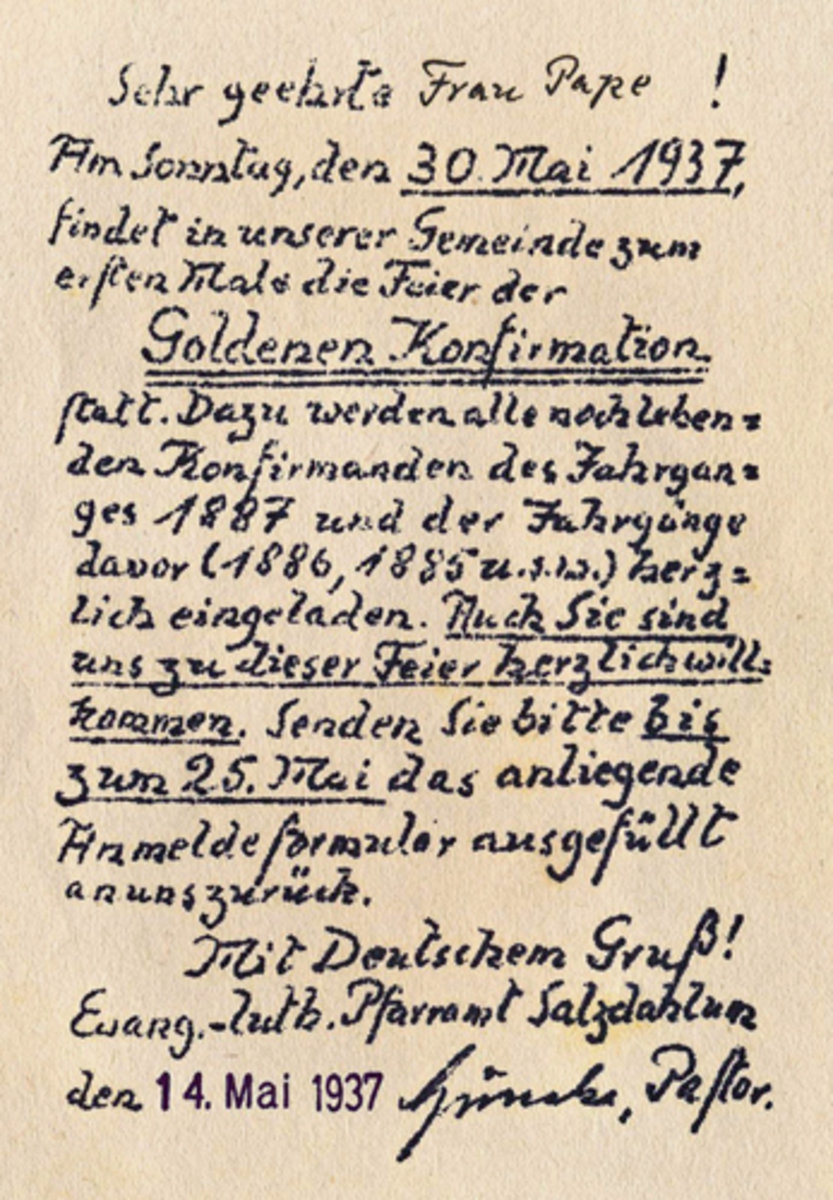 Sehr geehrte Frau Pape !
Am Sonntag, den 30. Mai 1937,
findet in unserer Gemeinde zum
ersten Male die Feier der
Goldenen Konfirmation
statt. Dazu werden alle noch leben=
den Konfirmanden des Jahrgan=
ges 1887 und der Jahrgänge
davor (1886, 1885 u.s.w.) herz=
lich eingeladen. Auch Sie sind
uns zu dieser Feier herzlich will=
kommen. Senden Sie bitte bis
zum 25. Mai das anliegende
Anmeldeformular ausgefüllt
an uns zurück.
Mit Deutschem Gruß!
Evang.-luth. Pfarramt Salzdahlum
den 14. Mai 1937 , Pastor.